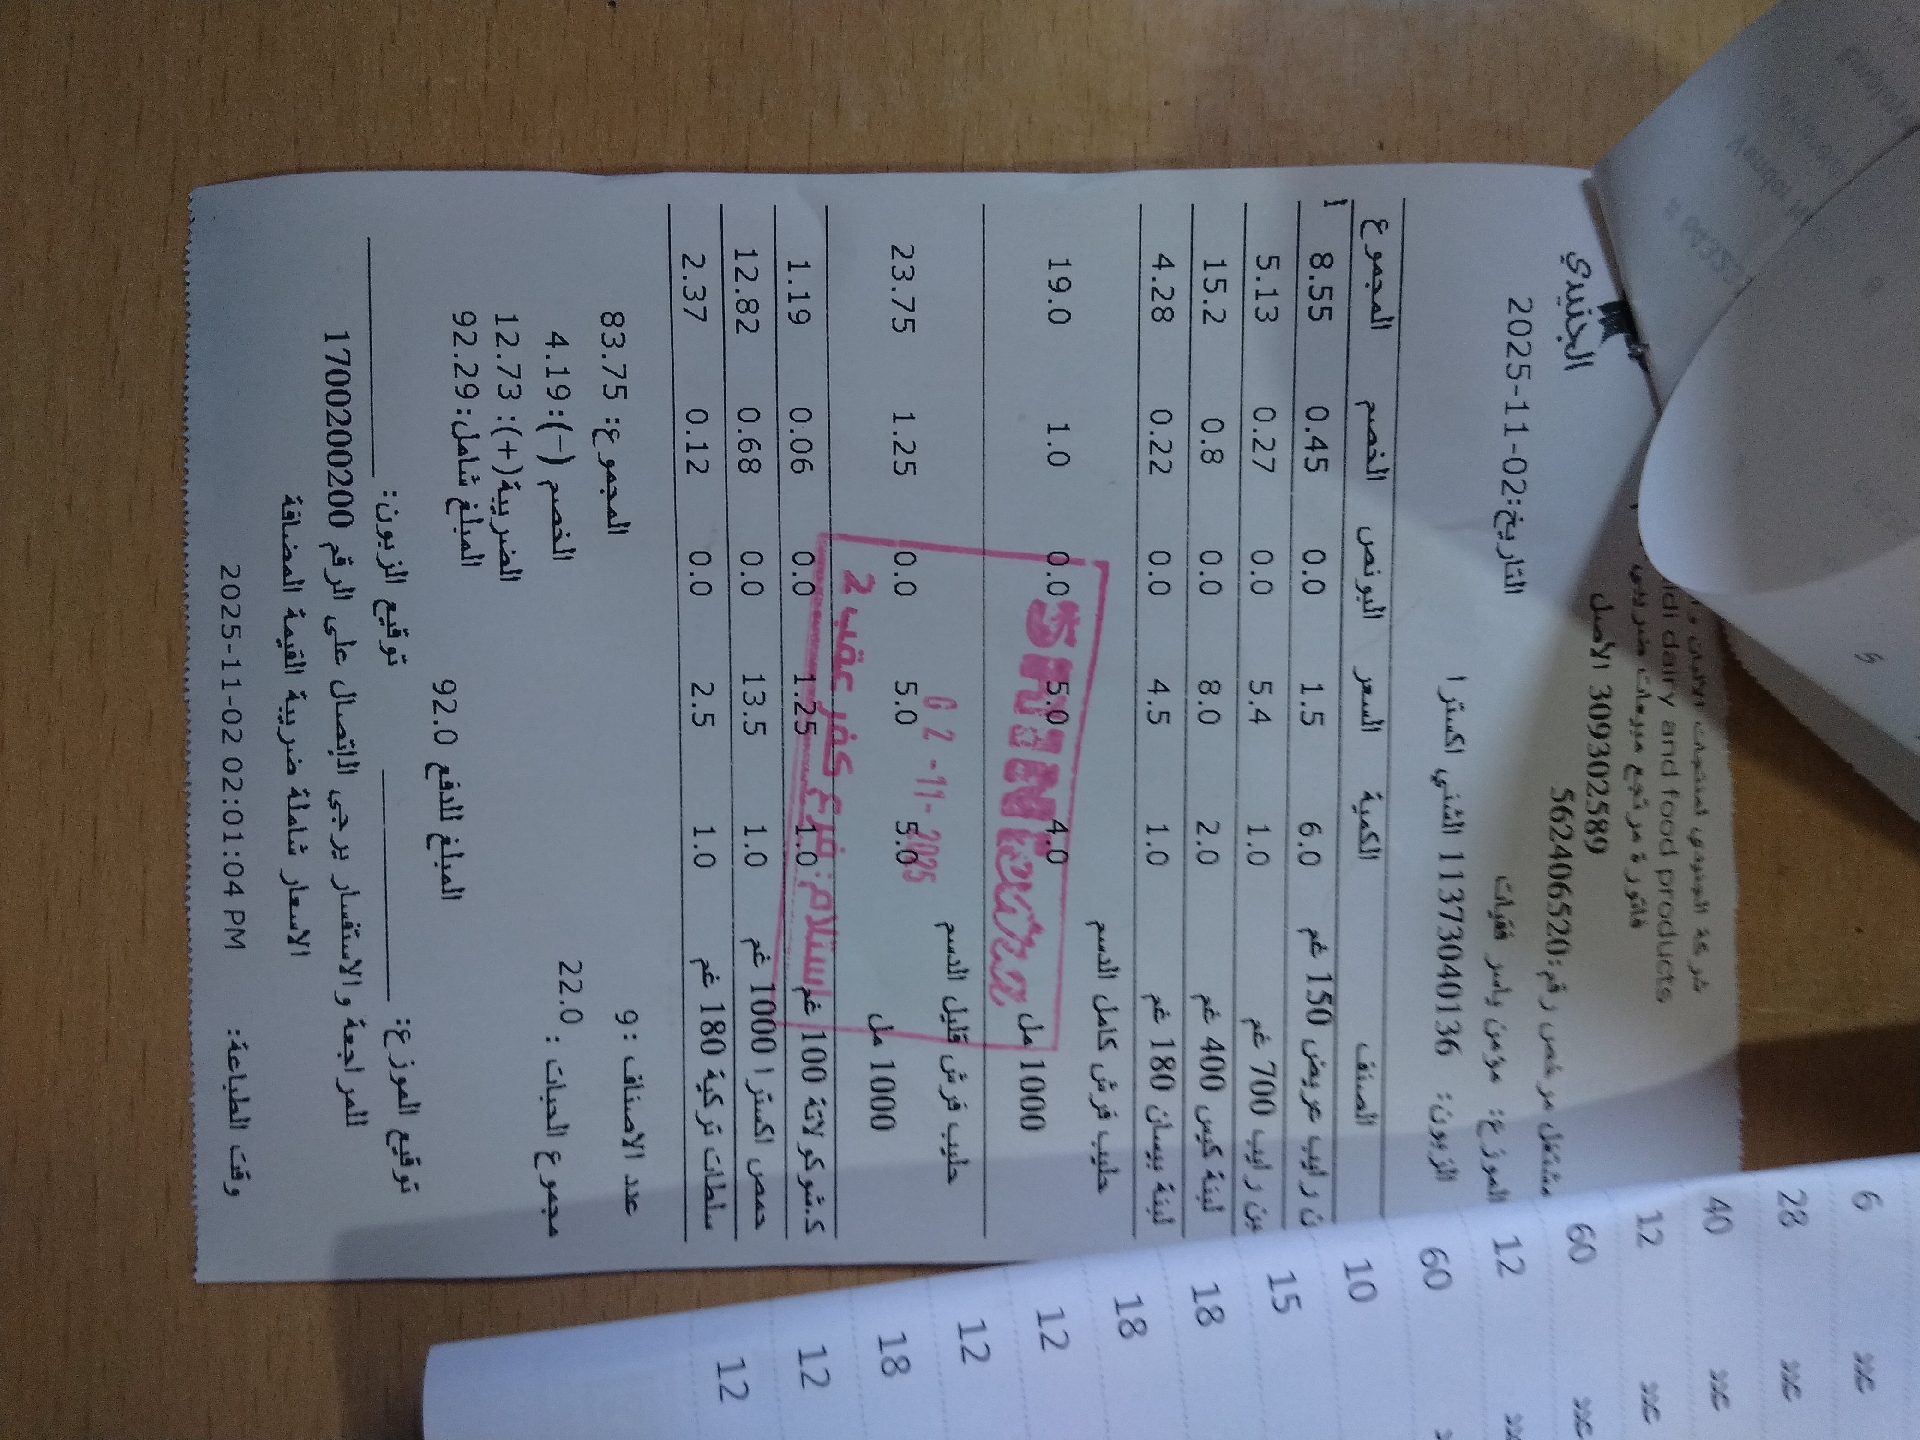 الجنيدي
شركة الجنيدي لمنتجات الألبان
idi dairy and food products
فاتورة مرتجع مبيعات ضريبي
309302589 الاصل
مشتغل مرخص رقم:562406520
التاريخ:2025-11-02
الموزع: مؤمن ياسر
الزبون: 1137304010136 الشني اكسترا
الصنف الكمية السعر البونص الخصم المجموع
ن رايب عريض 150 غم 6.0 1.5 0.0 0.45 8.55
بن رايب 700 غم 1.0 5.4 0.0 0.27 5.13
لبنة كيس 400 غم 2.0 8.0 0.0 0.8 15.2
لبنة بيسان 180 غم 1.0 4.5 0.0 0.22 4.28
حليب فرش كامل الدسم
1000 مل 4.0 5.0 0.0 1.0 19.0
حليب فرش قليل الدسم
1000 مل 5.0 5.0 0.0 1.25 23.75
ك.شوكولاتة 100 غم 1.0 1.25 0.0 0.06 1.19
حمص اكسترا 1000 غم 1.0 13.5 0.0 0.68 12.82
سلطات تركية 180 غم 1.0 2.5 0.0 0.12 2.37
SHINI extra
02-11-2025
استلام: فرع كفر عقب 2
عدد الاصناف :9
المجموع: 83.75
مجموع الحبات : 22.0
الخصم (-):4.19
الضريبة(+): 12.73
المبلغ شامل:92.29
المبلغ للدفع 92.0
توقيع الموزع: توقيع الزبون:
للمراجعة والاستفسار يرجى الاتصال على الرقم 1700200200
الاسعار شاملة ضريبة القيمة المضافة
وقت الطباعة: 2025-11-02 02:01:04 PM
6 عدد
28 عدد
40 عدد
12 عدد
60 عدد
12 عدد
60
10
15
18
18
12
12
18
12
12